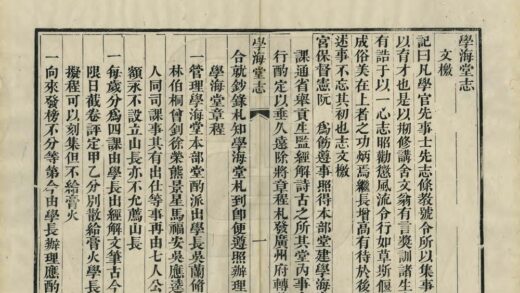 學海堂志
文檄
記曰凡學官先事士先志條教號令所以集事
以育才也是以剏修講舍文翁有言獎訓諸生
有誥于以一心志昭勸懲風流令行如草斯偃
成俗美在上者之功炳焉繼長增高有待於後
述事不忘其初也志文檄
宮保督憲阮 為飭遵事照得本部堂建學海
課通省舉貢生監經解詩古之所其堂內事
行酌定以垂久遠除將章程札發廣州府轉
學海堂志
一
合就鈔錄札知學海堂札到卽便遵照辦理
學海堂章程
一管理學海堂本部堂酌派出學長吳蘭脩
林伯桐曾釗徐榮熊景星馬福安吳應逵
人同司課事其有出仕等事再由七人公
額永不設立山長亦不允薦山長
一每歲分為四課由學長出經解文筆古今
限日截卷評定甲乙分別散給膏火學長
擬程可以刻集但不給膏火
一向來發榜不分等第今由學長辦理應酌